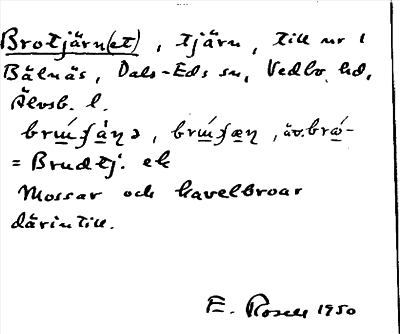 Brotjärn(et), tjärn, till nr 1
Bälnäs, Dals-Eds sn, Vedbo hd,
Älvsb. l.
äv.
= Brudtj. ek
Mossar och kavelbroar
därintill.
E. Rosell 1950